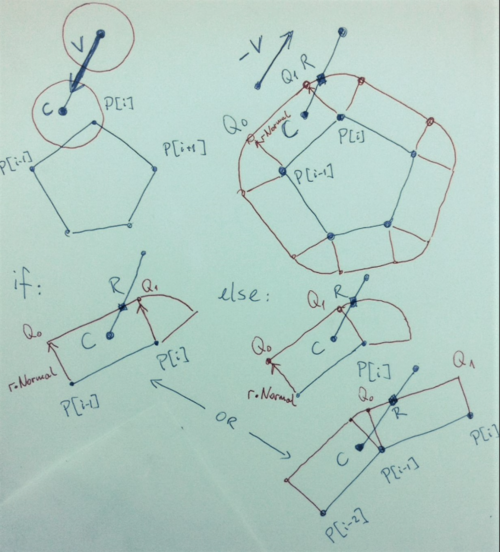 V
C
P[i]
P[i-1]
P[i+1]
-V
Q1 R
Q0
C
r·Normal
P[i]
P[i-1]
if:
R
Q1
Q0
C
r·Normal
P[i]
P[i-1]
OR
else:
R
Q1
Q0
C
r·Normal
P[i]
Q1
Q0
R
C
P[i-1]
P[i]
P[i-2]